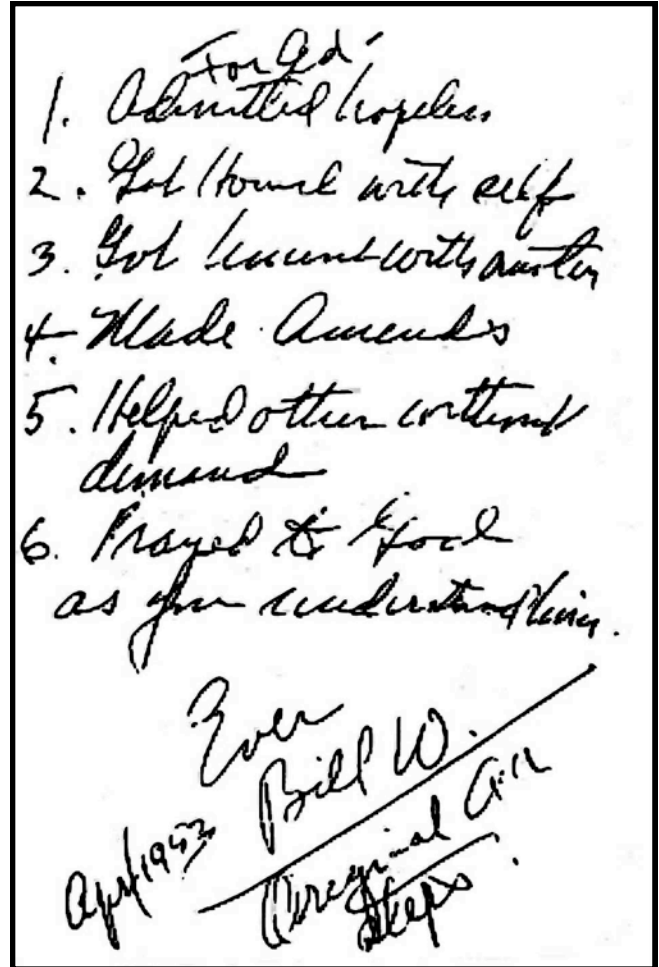 For Ed
1. Admitted hopeless
2. Got honest with self
3. Got honest with another
4. Made Amends
5. Helped other without
demand
6. Prayed to God
as you understand him.
Ever
Bill W.
Apr/1953
Original AA
Steps.